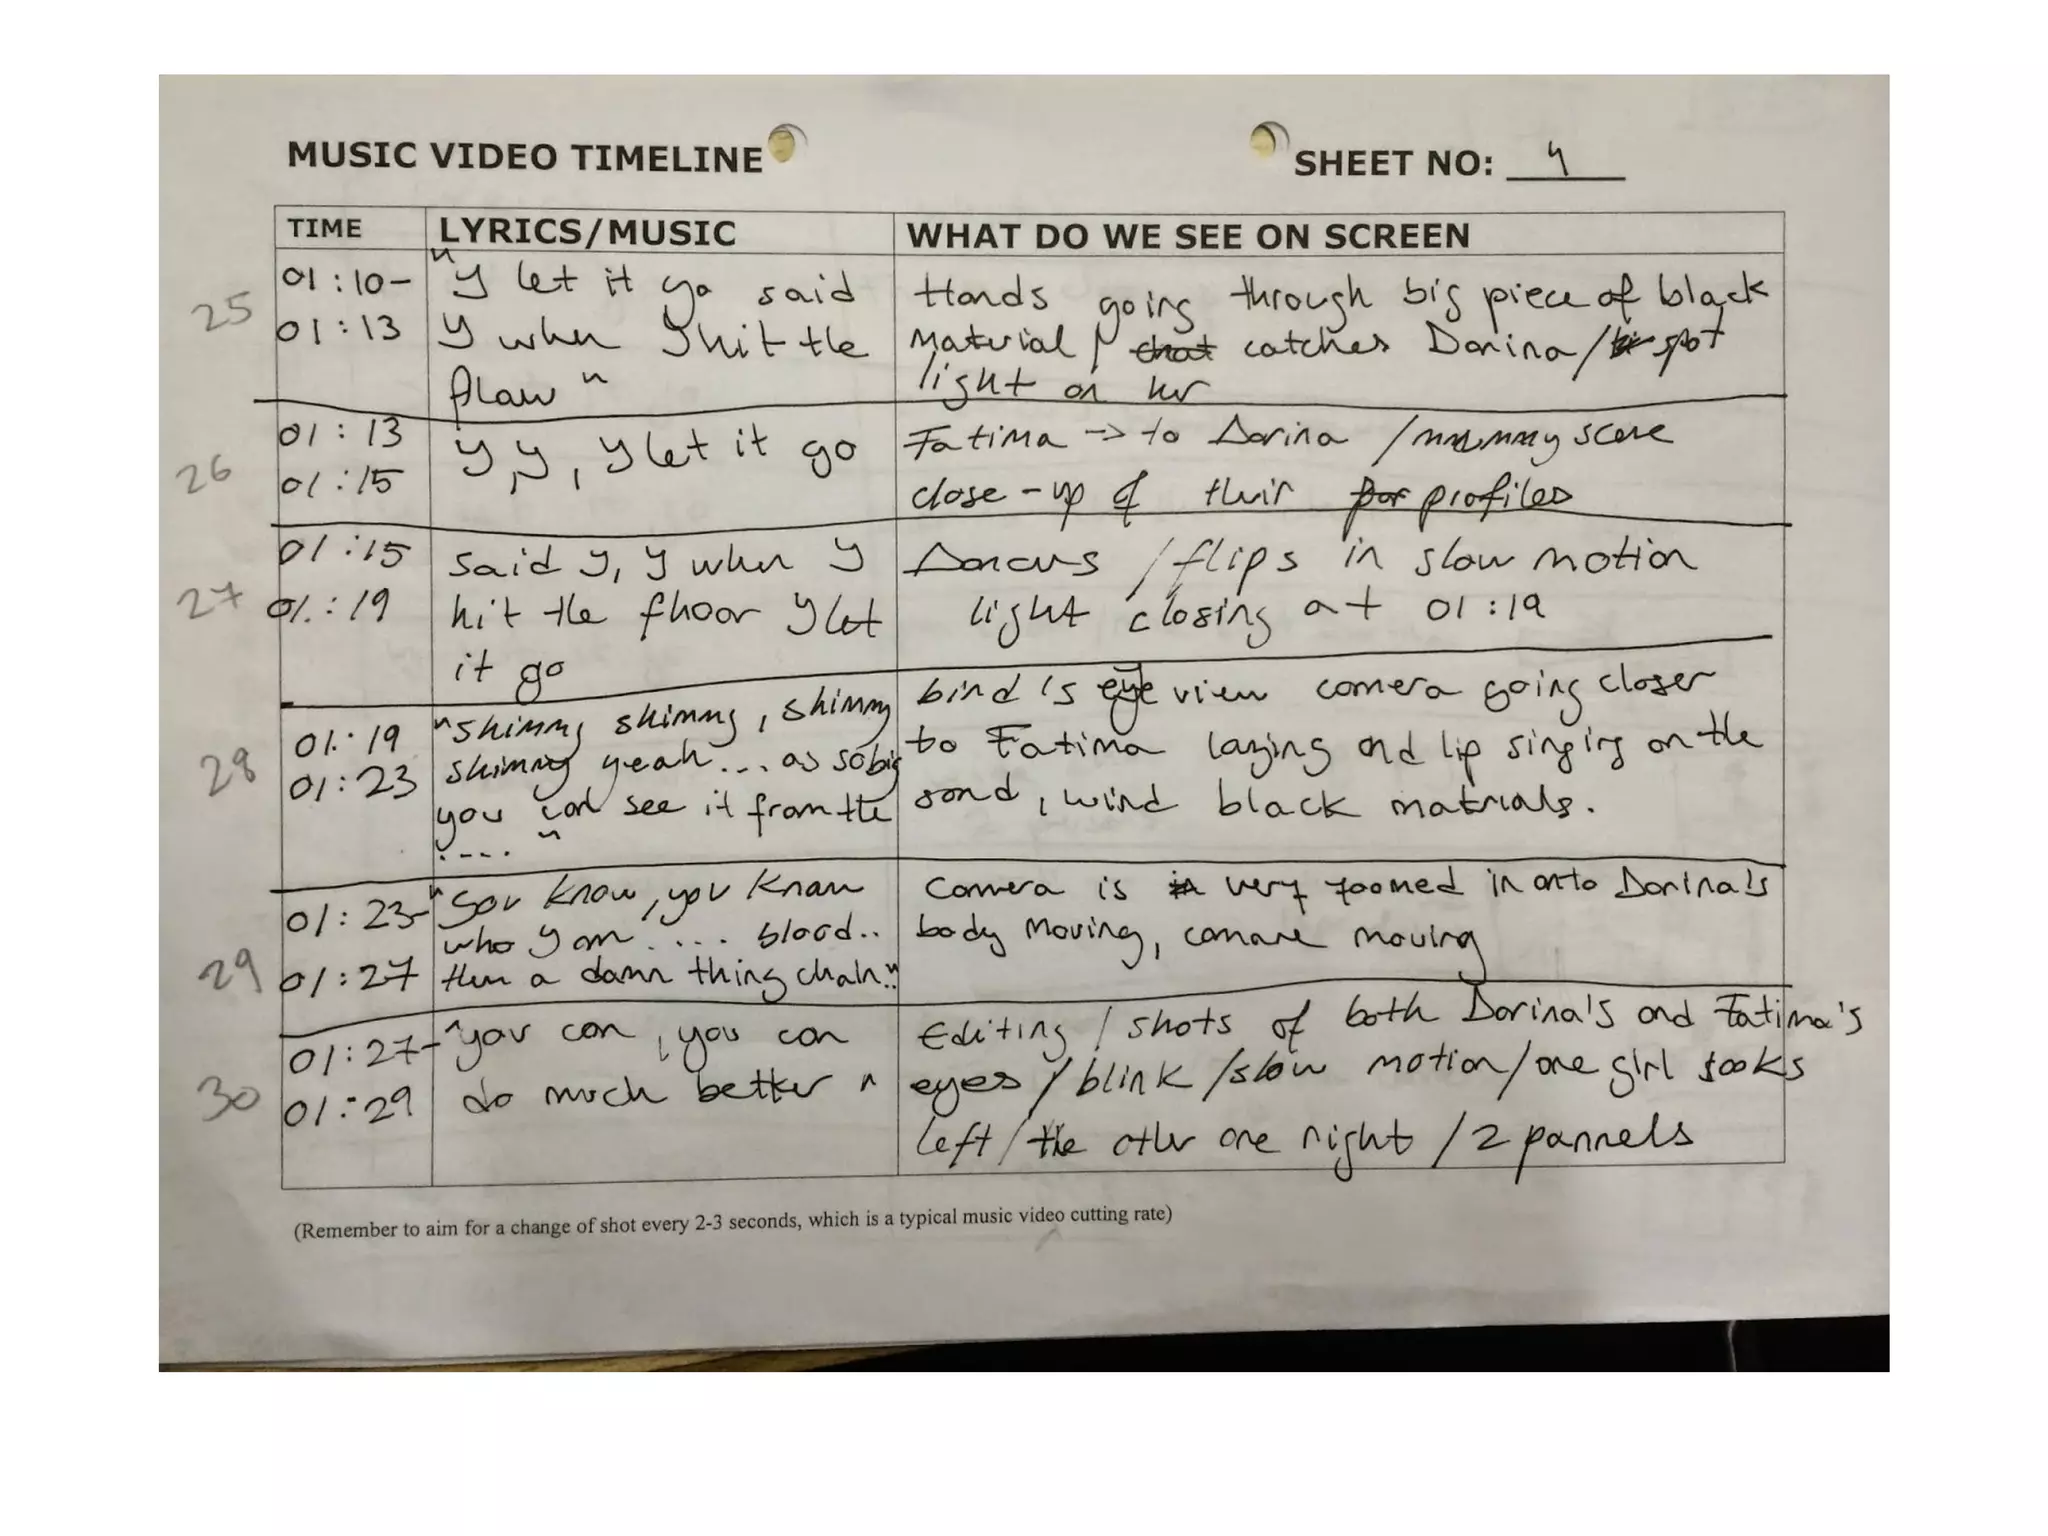 MUSIC VIDEO TIMELINE
SHEET NO: 4
TIME LYRICS/MUSIC WHAT DO WE SEE ON SCREEN
25
01:10-
01:13
"I let it go said
I when I hit the
flaw"
Hands going through big piece of black
material / catches Dorina / spot
light on her
26
01:13
01:15
I, I, I let it go
Fatima -> to Dorina / mummy scene
close-up of their profiles
27
01:15
01:19
said I, I when I
hit the fhoor I let
it go
Dancus / flips in slow motion
light closing at 01:19
28
01:19
01:23
"shimmy shimmy, shimmy
shimmy yeah... as so big
you can see it from the
....."
bird's eye view camera going closer
to Fatima laying and lip singing on the
sand, wind black matrials.
29
01:23-
01:27
"You know, you know
who I am .... blood..
then a damn thing chain.."
Camera is very zoomed in onto Dorina's
body moving, camare moving
30
01:27-
01:29
"you can, you can
do much better"
Editing / shots of both Dorina's and Fatima's
eyes / blink / slow motion / one girl looks
left / the other one right / 2 pannels
(Remember to aim for a change of shot every 2-3 seconds, which is a typical music video cutting rate)